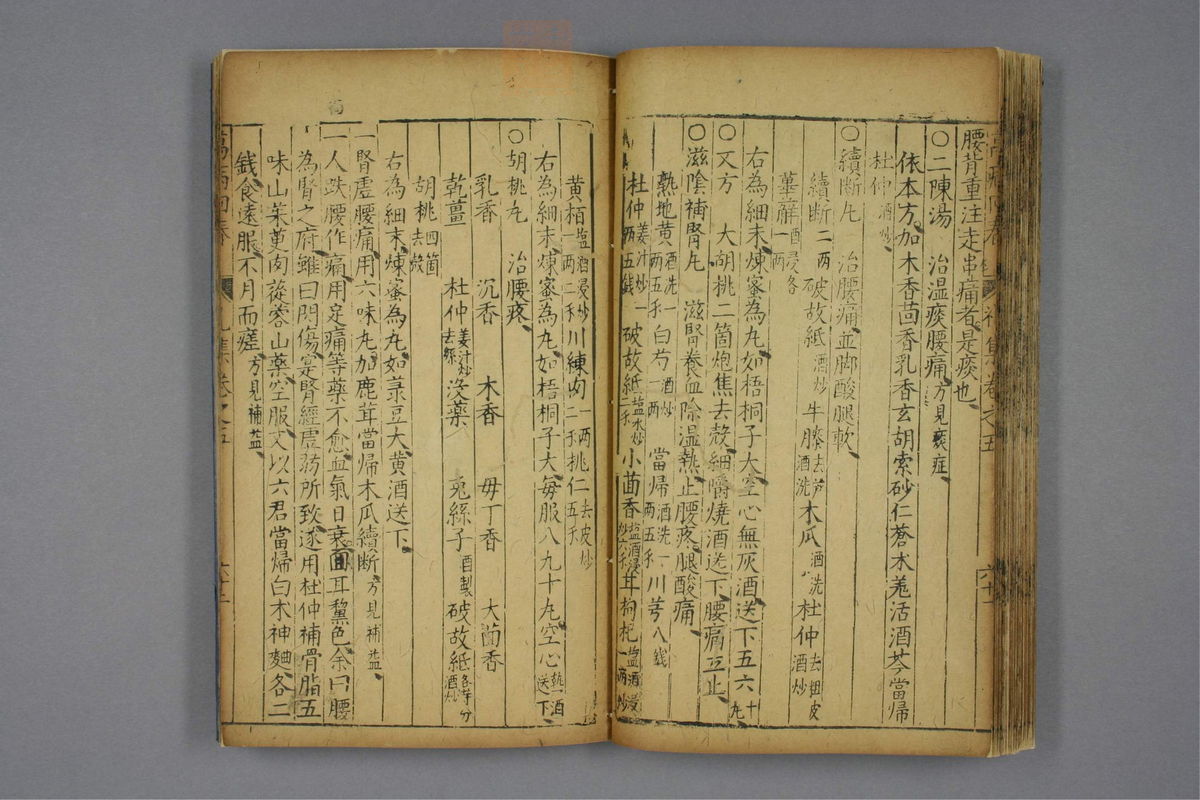 腰背重注走串痛者是痰也
〇二陳湯 治湿痰腰痛方見痰症
依本方加木香茴香乳香玄胡索砂仁蒼朮羗活酒芩當帰
杜仲酒炒
〇續断丸 治腰痛並脚酸腿軟
續断二両 破故紙酒炒 牛膝去芦酒洗 木瓜酒洗 杜仲去粗皮酒炒
萆薢酒浸各一両
右為細末煉蜜為丸如梧桐子大空心無灰酒送下五六十丸
〇又方 大胡桃二箇炮焦去殻細嚼燒酒送下腰痛立止
〇滋陰補腎丸 滋腎養血除湿熱止腰疼腿酸痛
熟地黄酒洗一両五禾 白芍酒炒一両 當帰酒洗一両五禾 川芎八銭
杜仲姜汁炒一両五銭 破故紙塩水炒一禾 小茴香塩酒浸炒六禾 甘枸杞塩酒浸炒一両
黄栢塩酒浸炒一両二禾 川練肉一両二禾 桃仁去皮炒五禾
右為細末煉蜜為丸如梧桐子大毎服八九十丸空心熱酒送下
〇胡桃丸 治腰疼
乳香 沉香 木香 毋丁香 大茴香
乾薑 杜仲姜汁炒去絲 没藥 兎絲子酒製 破故紙酒炒各等分
胡桃四箇去殻
右為細末煉蜜為丸如菉豆大黄酒送下
一腎虚腰痛用六味丸加鹿茸當帰木瓜續断方見補益
一人跌腰作痛用定痛等藥不愈血氣日衰面耳黧色余曰腰
為腎之府雖曰閃傷寔腎經虚弱所致遂用杜仲補骨脂五
味山茱萸肉蓯蓉山藥空服又以六君當帰白朮神麯各二
銭食遠服不月而瘥方見補益